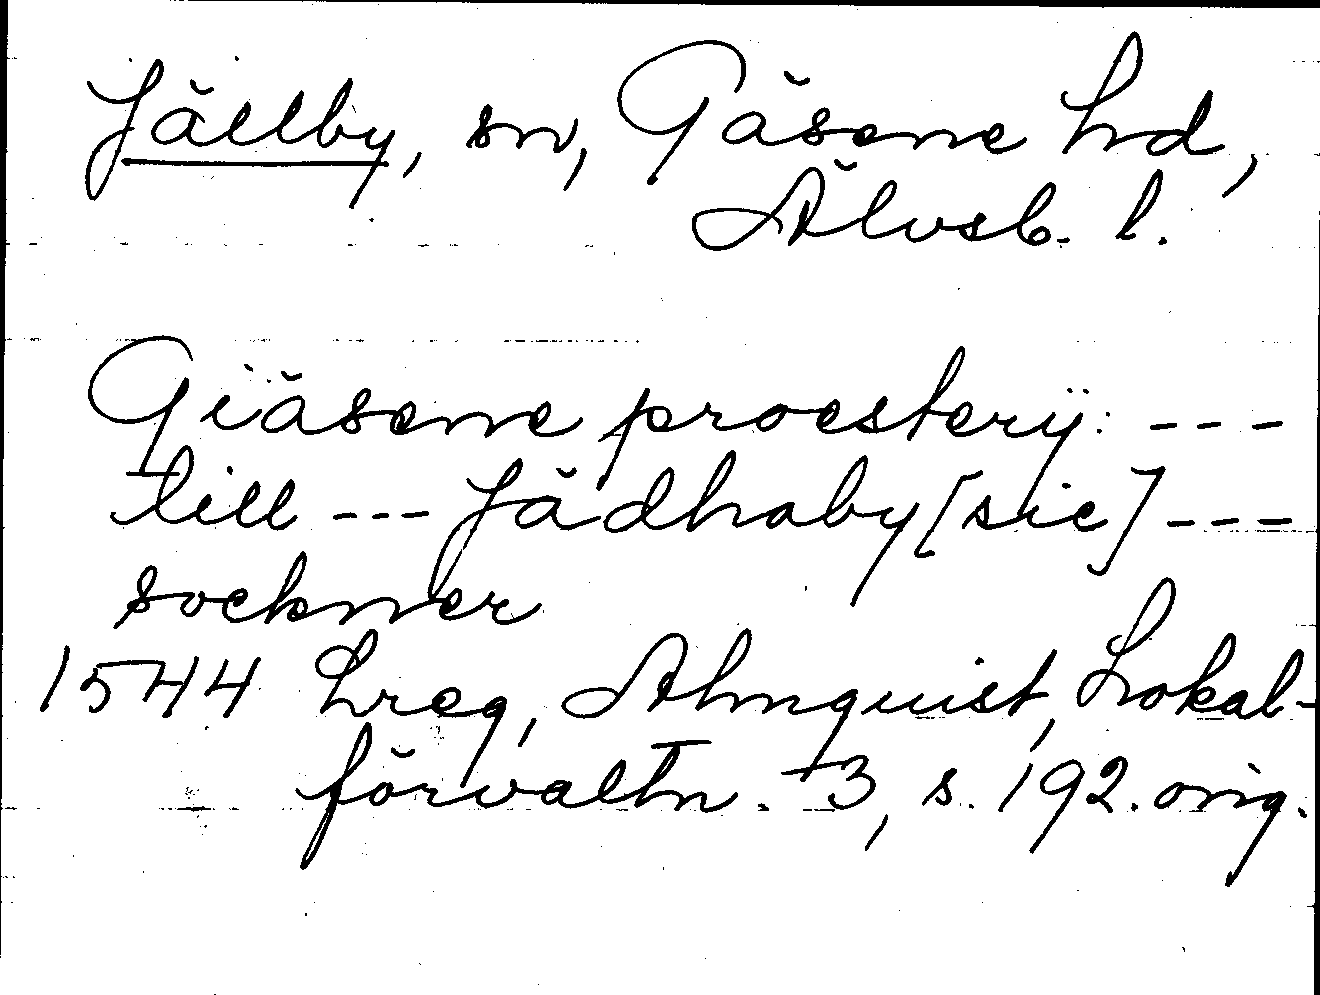 Jällby, sn, Gäsene hd,
Älvsb. l.
Giäsene proesterij: ---
till --- Jädhaby [sic] ---
sockner
1544 Lreg, Almquist, Lokal-
förvaltn. 3, s. 192. orig.